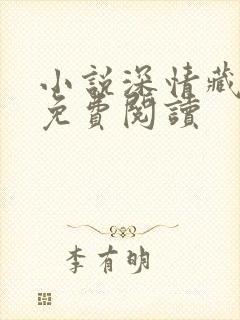 小說深情藏
免費閱讀
李有明